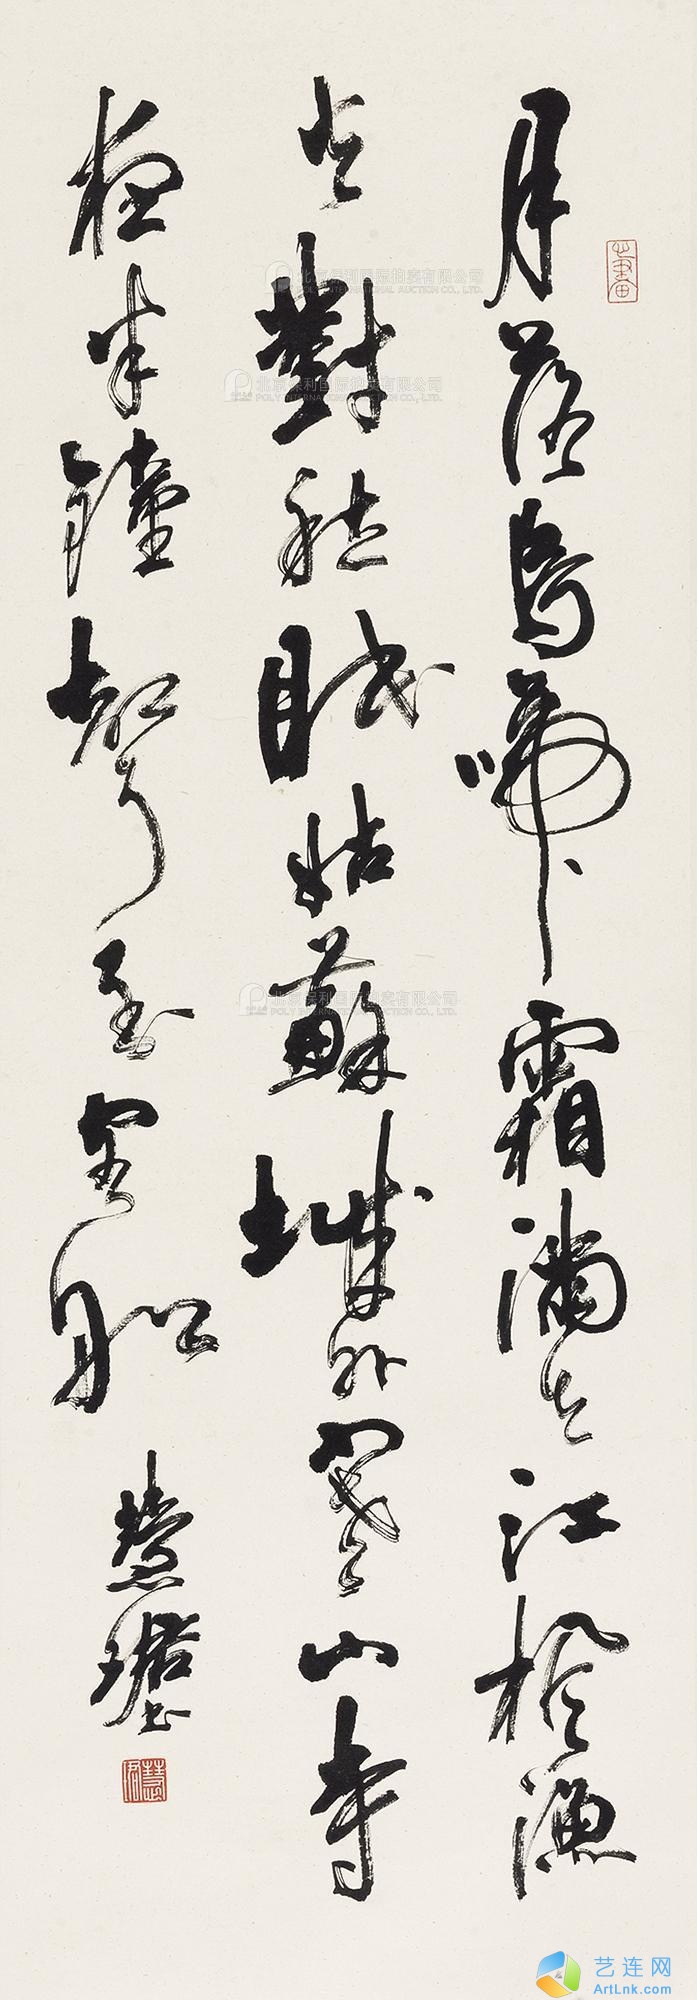 月落烏啼霜滿天江楓漁
火對愁眠姑蘇城外寒山寺
夜半鐘聲到客船
慧珺書
慧珺
北京保利国际拍卖有限公司
POLY INTERNATIONAL AUCTION CO., LTD.
北京保利国际拍卖有限公司
POLY INTERNATIONAL AUCTION CO., LTD.
北京保利国际拍卖有限公司
POLY INTERNATIONAL AUCTION CO., LTD.
艺连网
ArtLnk.com